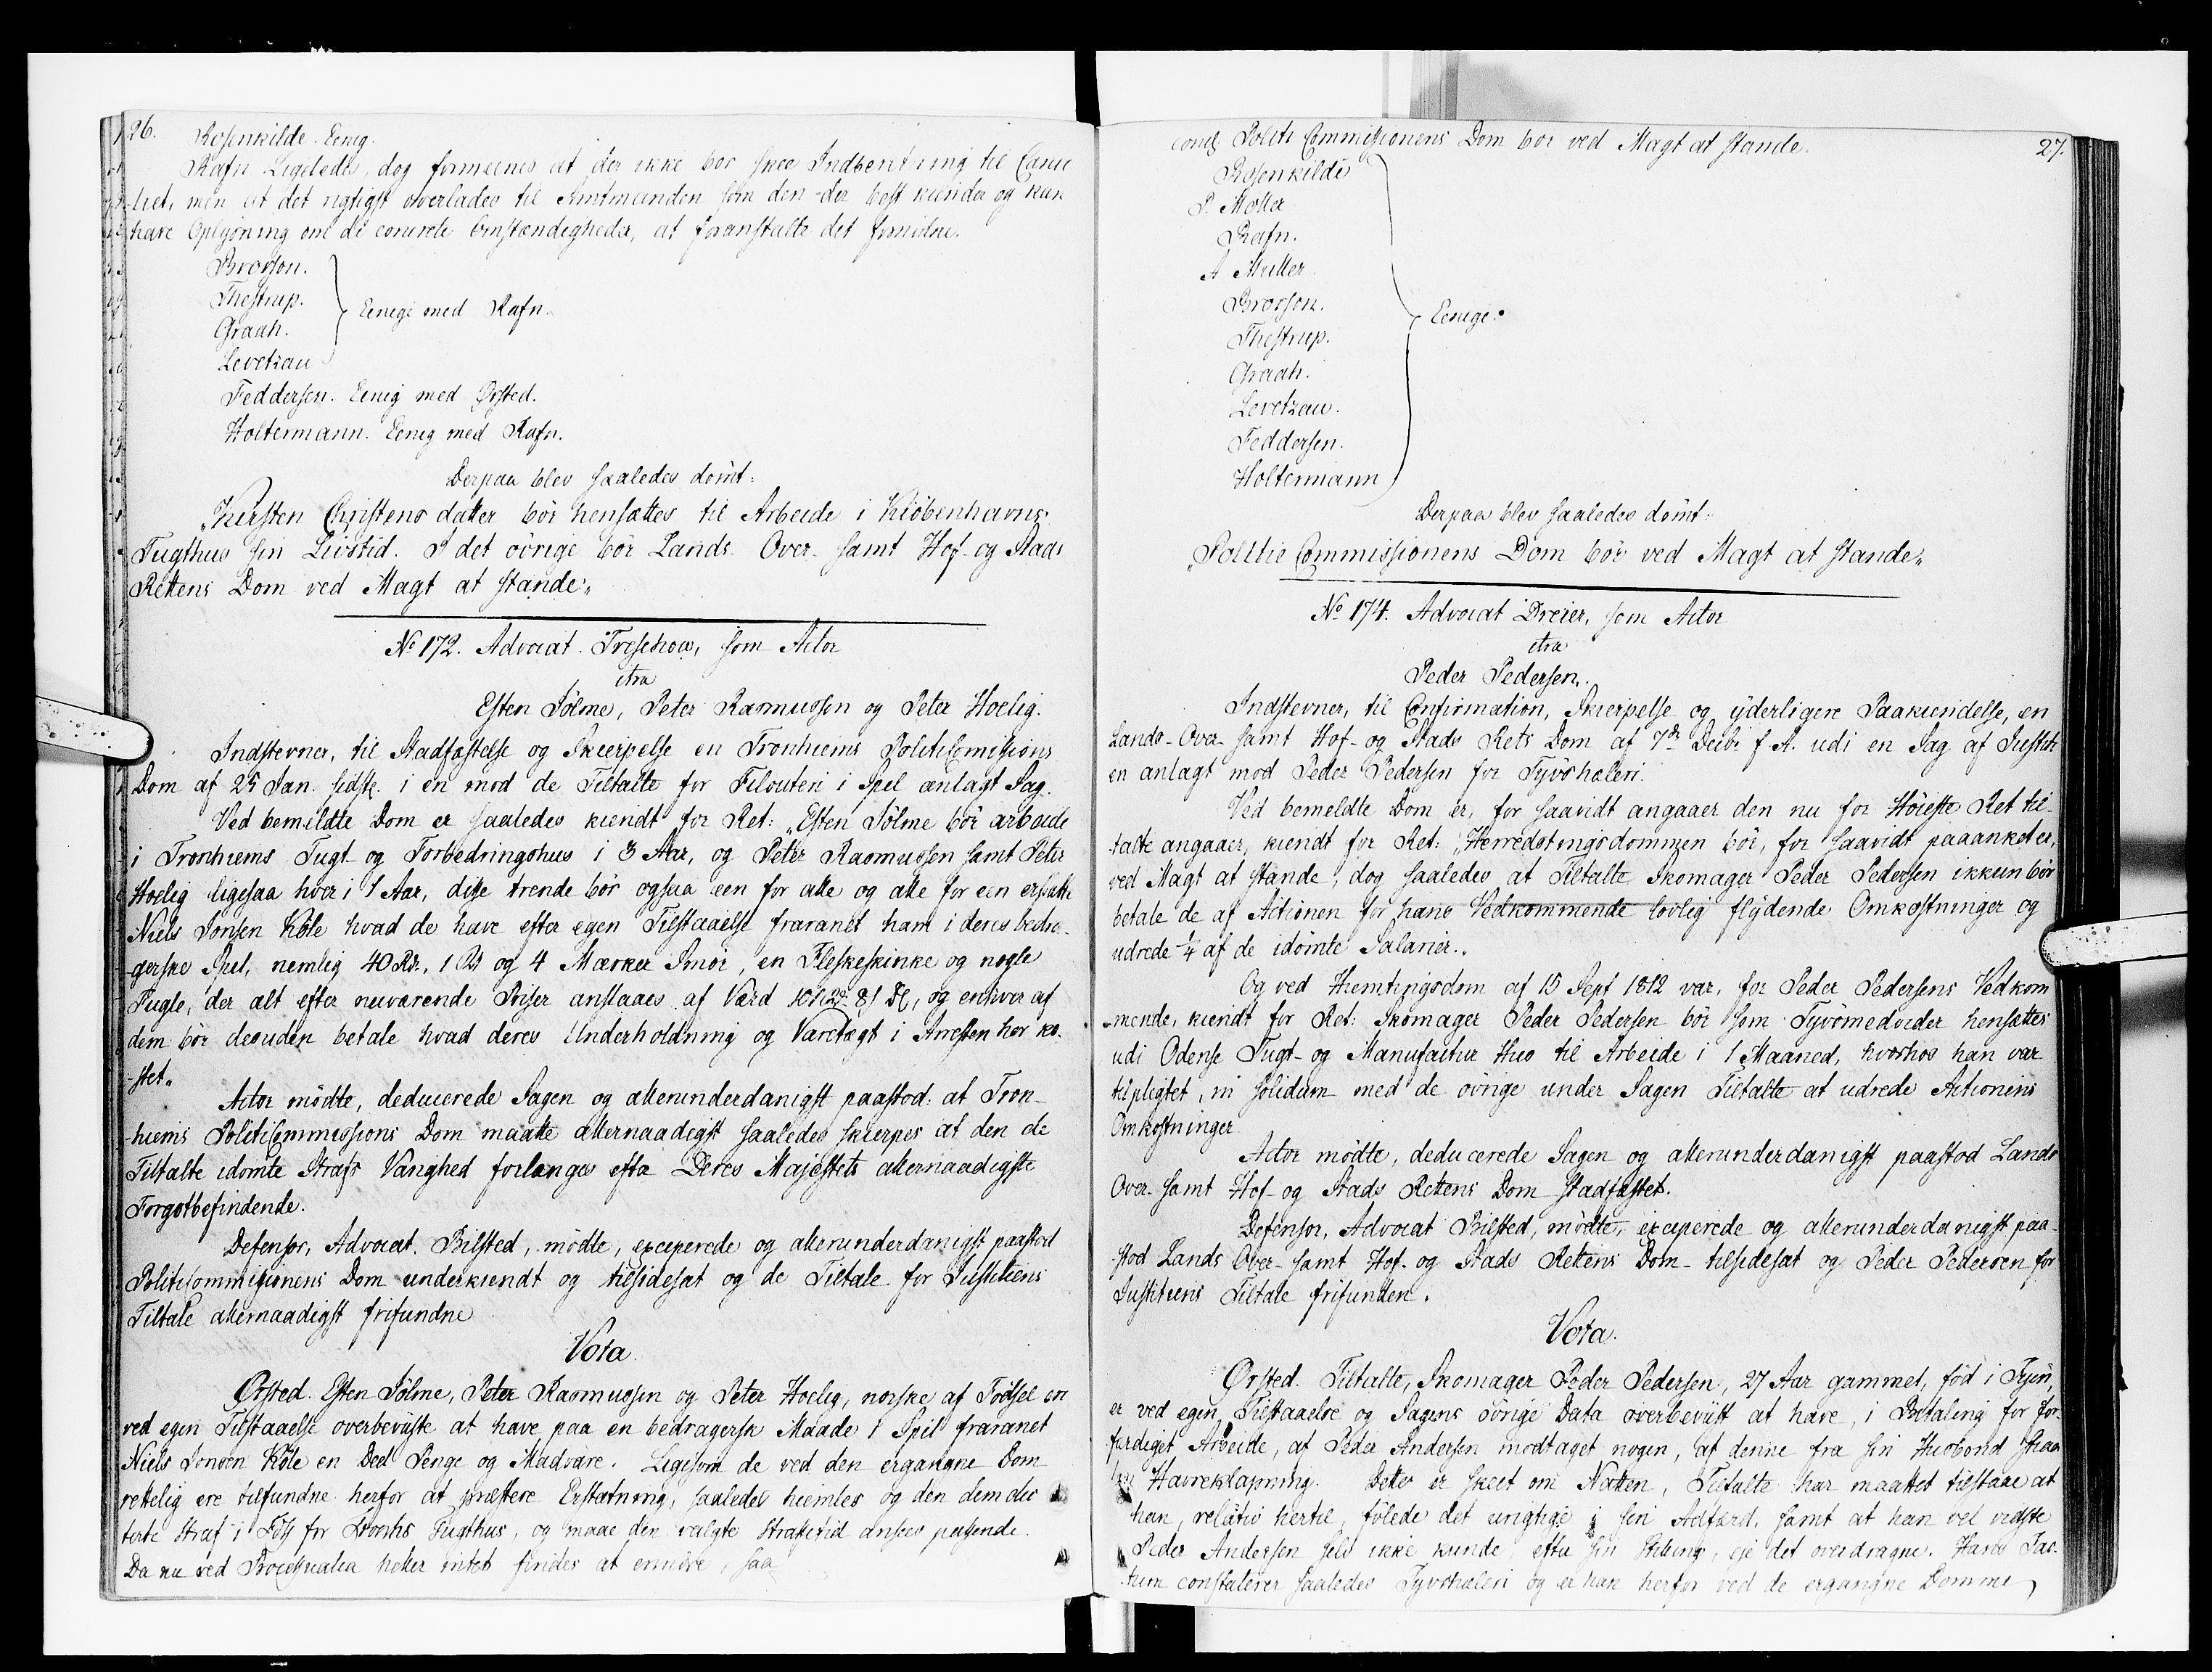 26.
Rosenkilde. Eenig.
Rafn Ligeledes, dog formeenes at der ikke bør skee Indberetning til Cancel-
liet, men at det rigtigst overlades til Amtmanden som den der best kiender og kan
have Oplysning om de concrete Omstændigheder, at foranstalte det fornødne.
Brorson.
Thestrup.
Graah.
Levetzau
Eenige med Rafn.
Feddersen. Eenig med Ørsted.
Holtermann. Eenig med Rafn.
Derpaa blev saaledes dømt:
„Kirsten Christens datter bør hensættes til Arbeide i Kiøbenhavns
Tugthus sin Livstid. I det øvrige bør Lands Over- samt Hof- og Stads
Rettens Dom ved Magt at stande„
No 172. Advocat Treschow, som Actor
ctra
Esten Sølme, Peter Rasmussen og Peter Hoelig.
Indstevner, til Stadfæstelse og Skierpelse en Tronhiems Politicommissions
Dom af 25 Jan. sidstl. i en mod de Tiltalte for Filouteri i Spel anlagt Sag.
Ved bemeldte Dom er saaledes kiendt for Ret: „Esten Sølme bør arbeide
i Tronhiems Tugt- og Forbedringshus i 3 Aar, og Peter Rasmussen samt Peter
Hoelig ligesaa hver i 1 Aar, disse trende bør ogsaa een for alle og alle for een erstatte
Niels Jonsen Kole hvad de have efter egen Tilstaaelse fravanet ham i deres bedra-
gerske Spel, nemlig 40 Rdr., 1 og 4 Mærker Smør, en Fleskeskinke og nogle
Fugle, der alt efter nuværende Priser anslaaes af Værd og enhver af
dem bør desuden betale hvad deres Underholdning og Varetægt i Arresten har ko-
stet„
Actor mødte, deducerede Sagen og allerunderdanigst paastod: at Tron-
hiems Politicommissions Dom maatte allernaadigst saaledes skierpes at den de
Tiltalte idømte Strafs Varighed forlænges efter Deres Majestets allernaadigste
Forgotbefindende.
Defensor, Advocat Bilsted, mødte, exciperede og allerunderdanigst paastod
Politicommissionens Dom underkiendt og tilsidesat og de Tiltale for Justitiens
Tiltale allernaadigst frifundne
Vota
Ørsted. Esten Sølme, Peter Rasmussen og Peter Hoelig, norske af Fødsel ere
ved egen Tilstaaelse overbeviiste at have paa en bedragersk Maade i Spil fravanet
Niels Jonsen Kole en Deel Penge og Madvare. Ligesom de ved den ergangne Dom
rettelig ere tilfundne herfor at præstere Erstatning, saaledes hiemles og den dem dic-
terte Straf i for Tugthus, og maae den valgte Strafetid ansees passende.
Da nu ved Processualia heller intet findes at erindre, saa
27.
conf. Politi Commissionens Dom bør ved Magt at stande.
Rosenkilde
P. Møller
Rafn.
A Müller
Brorson.
Thestrup.
Graah.
Levetzau.
Feddersen.
Holtermann
Eenige.
Derpaa blev saaledes dømt:
„Politie Commissionens Dom bør ved Magt at stande„
No 174. Advocat Dreier, som Actor
ctra
Peder Pedersen.
Indstevner, til Confirmation, Skierpelse og yderligere Paakiendelse, en
Lands- Over- samt Hof- og Stads Rets Dom af 7de Decbr f. A. udi en Sag af Justiti-
en anlagt mod Peder Pedersen for Tyvshæleri.
Ved bemeldte Dom er, for saavidt angaaer den nu for Høieste Ret til-
talte angaaer, kiendt for Ret: „Herredstingsdommen bør, for saavidt paaanket er,
ved Magt at stande, dog saaledes at Tiltalte Skomager Peder Pedersen ikkun bør
betale de af Actionen for hans Vedkommende lovlig flydende Omkostninger og
udrede 1/4 af de idømte Salarier„
Og ved Hiemtingsdom af 15 Sept 1812 var, for Peder Pedersens Vedkom-
mende, kiendt for Ret: Skomager Peder Pedersen bør som Tyvsmedvider hensættes
udi Odense Tugt- og Manufactur Hus til Arbeide i 1 Maaned, hvorhos han var
tilpligtet, in solidum med de øvrige under Sagen Tiltalte at udrede Actionens
Omkostninger
Actor mødte, deducerede Sagen og allerunderdanigst paastod Lands
Over- samt Hof- og Stads Rettens Dom stadfæstet.
Defensor, Advocat Bilsted, mødte, exciperede og allerunderdanigst paa-
stod Lands Over- samt Hof- og Stads Rettens Dom tilsidesat og Peder Pedersen for
Justitiens Tiltale frifunden.
Vota.
Ørsted. Tiltalte, Skomager Peder Pedersen, 27 Aar gammel, fød i Fyen,
er ved egen Tilstaaelse og Sagens øvrige Data overbeviist at have, i Betaling for for-
færdiget Arbeide, af Peder Andersen modtaget nogen, af denne fra sin Husbond
Havre Dette er skeet om Natten, Tiltalte har maattet tilstaae at
han, relativ hertil, følede det urigtige i sin Adfærd, samt at han vel vidste
Peder Andersen selv ikke kunde, efter sin Stilling, eje det overdragne. Hans Fac-
tum constaterer saaledes Tyvshæleri og er han herfor ved de ergangne Domme